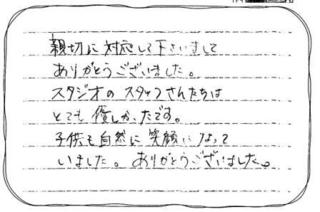 親切に対応して下さいまして
ありがとうございました。
スタジオのスタッフさんたちは
とても優しかったです。
子供も自然に笑顔になって
いました。ありがとうございました。